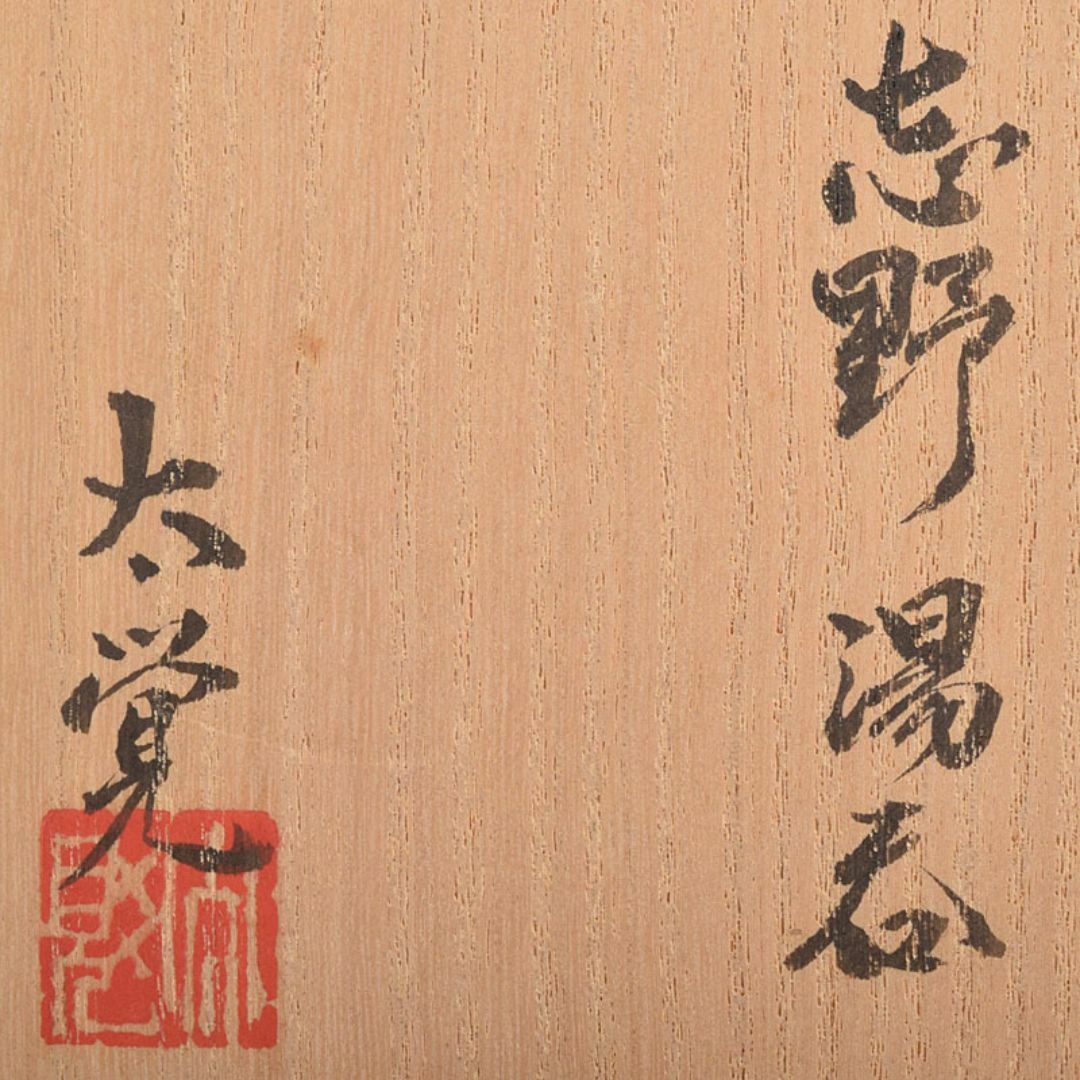 志野湯呑
太覚